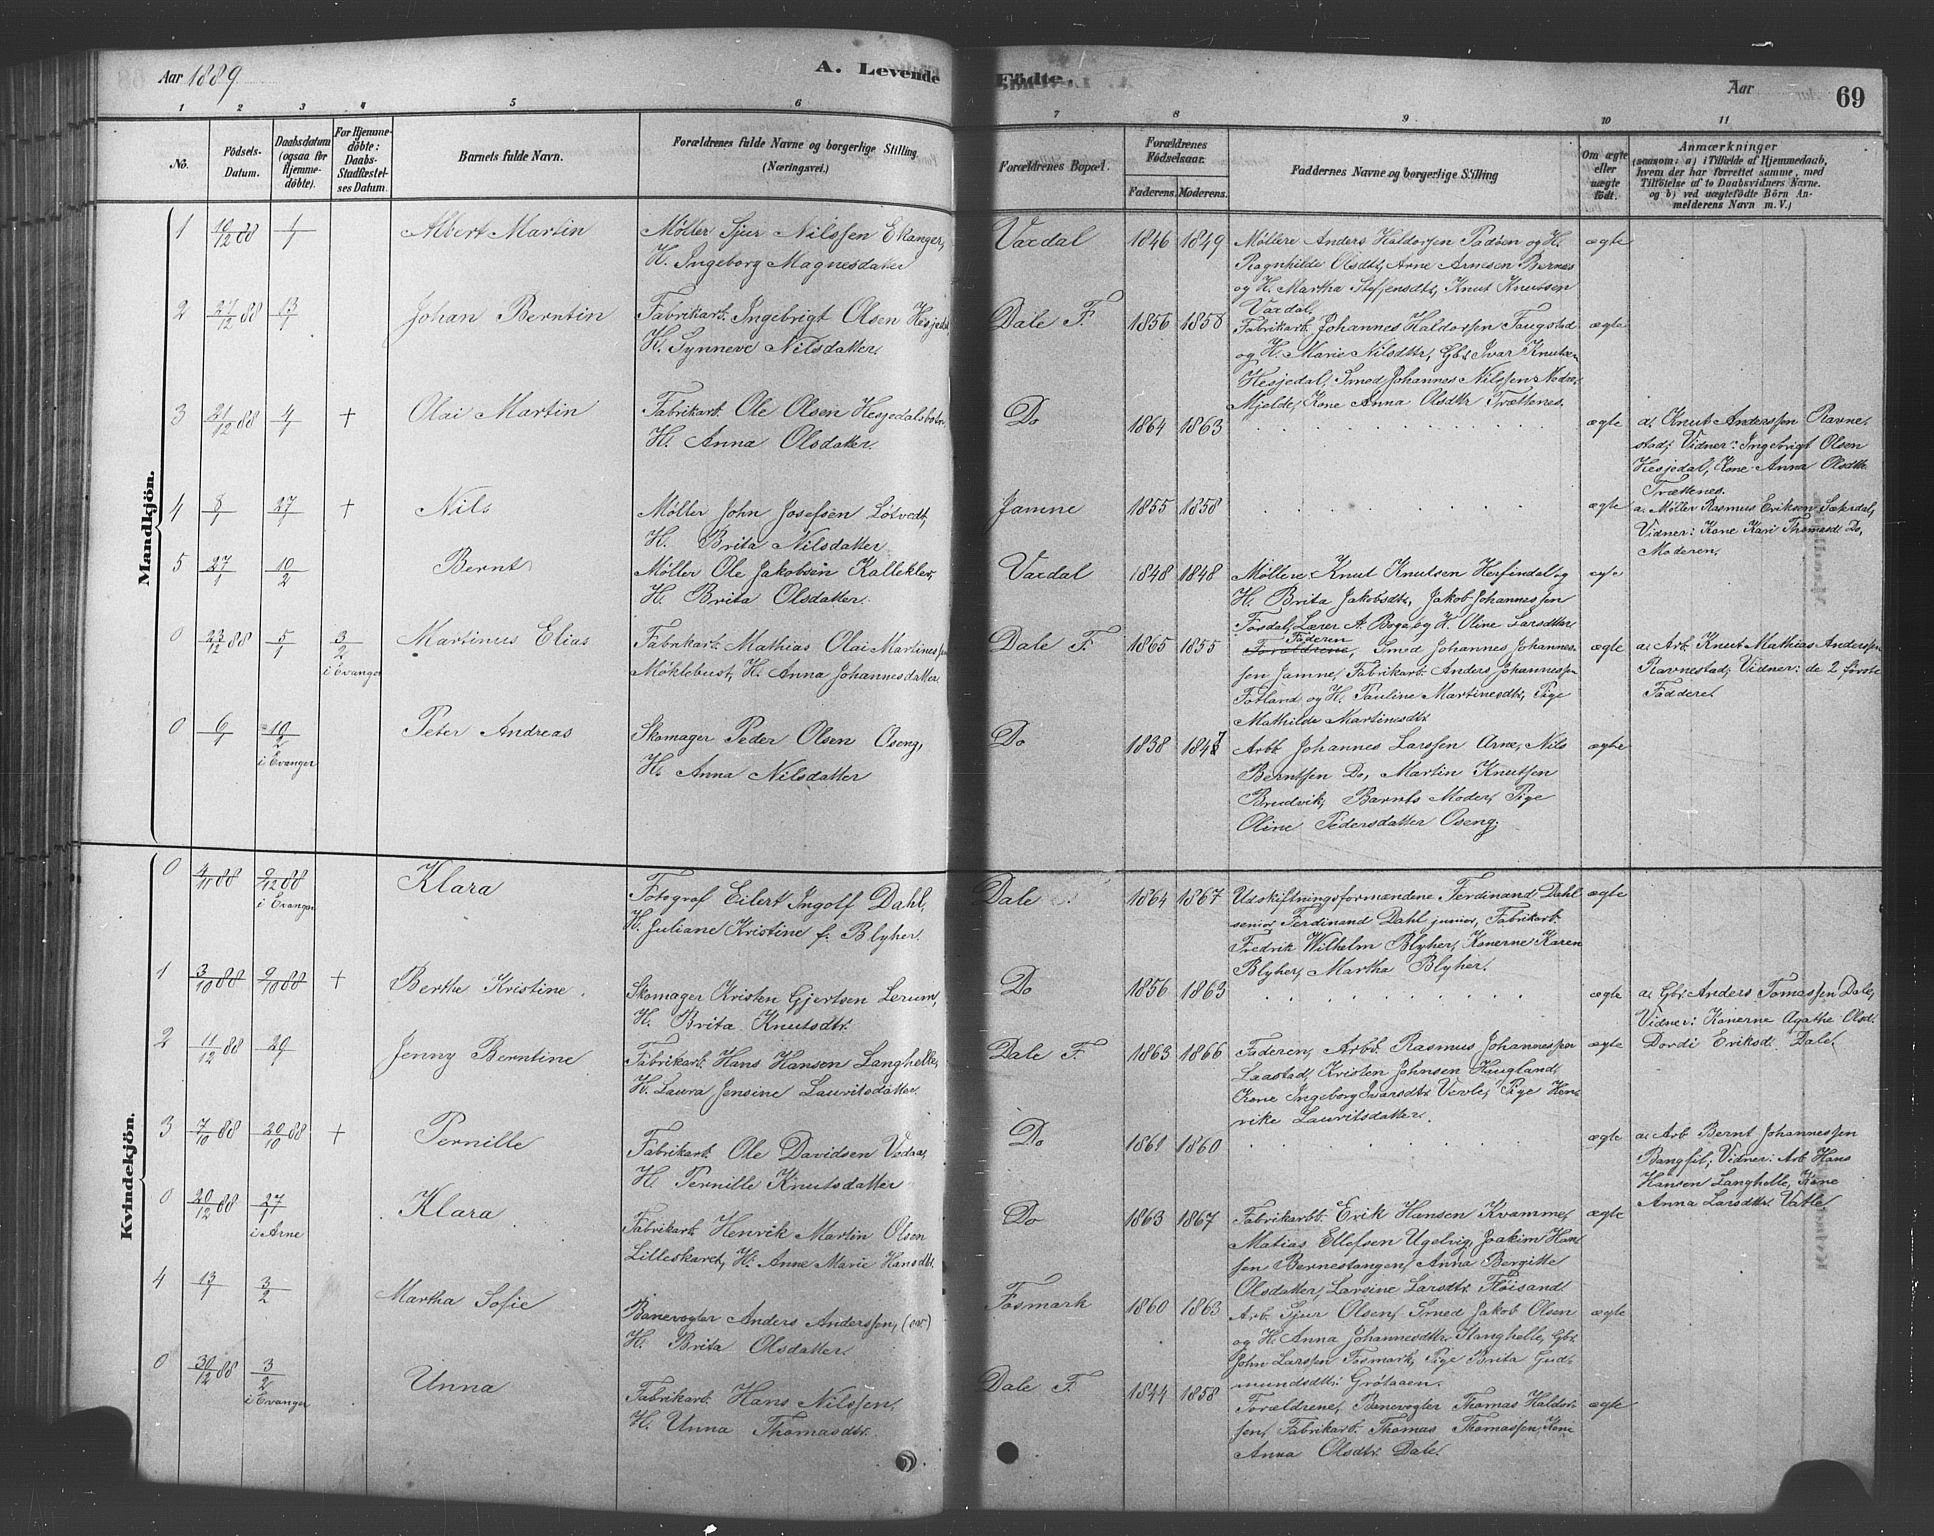 Aar 1889 A. Levende Födte. Aar 69
1 2 3 4 5 6 7 8 9 10 11
No.
Födsels-Datum.
Daabsdatum (ogsaa for Hjemmedöbte).
For Hjemmedöbte: Daabs-Stadfæstelses Datum.
Barnets fulde Navn.
Forældrenes fulde Navne og borgerlige Stilling. (Næringsvei.)
Forældrenes Bopæl.
Forældrenes Födselsaar.
Faderens. Moderens.
Faddernes Navne og borgerlige Stilling
Om ægte eller uægte födt.
Anmærkninger
(saasom: a) i Tilfælde af Hjemmedaab, hvem der har forrettet samme, med Tilföielse af to Daabsvidners Navne. og b) ved uægtefödte Börn Anmelderens Navn m. V.)
Mandkjön.
1 10/12 88 1/1 Albert Martin
Møller Sjur Nilssen Ekanger,
H. Ingeborg Magnesdatter
Vaxdal 1846 1849
Møllere Anders Haldorsen Padøen og H.
Ragnhilde Olsdtr, Arne Arnesen Bernes
og H. Martha Steffensdtr, Knut Knutsen
Vaxdal.
ægte
2 27/12 88 13/1 Johan Berntin
Fabrikarb. Ingebrigt Olsen Hesjedal,
H. Synneve Nilsdatter.
Dale F. 1856 1858
Fabrikarb. Johannes Haldorsen Faugstad
og H. Marie Nilsdtr, Gbr. Ivar Knutsen
Hesjedal, Smed Johannes Nilssen Nedre
Mjelde, Kone Anna Olsdtr Trættenes.
ægte
3 21/12 88 4/1 + Olai Martin
Fabrikarb. Ole Olsen Hesjedalsbotn
H. Anna Olsdatter.
Do 1864 1863
ægte
a, Knut Anderssen Ravne-
stad; Vidner: Ingebrigt Olsen
Hesjedal, Kone Anna Olsdtr
Trættenes.
4 8/1 27/1 + Nils
Møller John Josefsen Løtvedt,
H. Brita Nilsdatter
Jamne 1855 1858
ægte
a. Møller Rasmus Eriksen Sæterdal,
Vidner: Kone Kari Thomasdt Do,
Moderen.
5 27/1 10/2 Bernt
Møller Ole Jakobsen Kallekler,
H. Brita Olsdatter.
Vaxdal 1848 1848
Møllere Knut Knutsen Herfindal og
H. Brita Jakobsdtr, Jakob Johannessen
Forsdal, Lærer A. Boge og H. Oline Larsdatter
0 23/12 88 5/1 3/2 i Evanger Martinus Elias
Fabrikarb. Mathias Olai Martinessen
Møklebust, H. Anna Johannesdatter
Dale F 1865 1855
Faderen
Forældrene, Smed Johannes Johannes-
sen Jamne, Fabrikarb. Anders Johannessen
Fotland og H. Pauline Martinesdtr, Pige
Mathilde Martinesdtr
ægte
a. Arb. Knut Mathias Anderssen
Ravnestad; Vidner: de 2 første
Faddere.
0 6/1 10/2 i Evanger Peter Andreas
Skomager Peder Olsen Oseng,
H. Anna Nilsdatter
Do 1838 1847
Arbb. Johannes Larssen Arne, Nils
Berntsen Do, Martin Knutsen
Brudvik, Barnets Moder, Pige
Oline Pedersdatter Oseng.
ægte
Kvindekjön.
0 4/11 88 9/12 88 i Evanger Klara
Fotograf Eilert Ingolf Dahl,
H. Juliane Kristine f. Blyher.
Dale 1864 1867
Udskiftningsformændene Ferdinand Dahl
senior, Ferdinand Dahl junior, Fabrikarb.
Fredrik Wilhelm Blyher, Konerne Karen
Blyher, Martha Blyher.
ægte
1 3/10 88 9/10 88 + Berthe Kristine
Skomager Kristen Gjertsen Lerum,
H. Brita Knutsdtr.
Do 1856 1863
ægte
a. Gbr. Anders Tomessen Dale,
Vidner: Konerne Agathe Olsd.
Dordi Eriksd. Dale
2 11/12 88 20/1 Jenny Berntine
Fabrikarb. Hans Hansen Langhelle,
H. Laura Jensine Lauritsdatter.
Dale F. 1863 1866
Faderen, Arbb. Rasmus Johannessen
Laastad, Kristen Johnsen Haugland,
Kone Ingeborg Ivarsdtr. Vevle, Pige Hen-
rike Lauritsdatter.
ægte
3 7/10 88 20/10 88 + Pernille
Fabrikarb. Ole Davidsen Vadaas,
H. Pernille Knutsdatter
Do 1861 1860
ægte
a. Arb Bernt Johannessen
Bangfil; Vidner: Arb. Hans
Hansen Langhelle, Kone
Anna Larsdtr. Vatle
0 20/12 88 27/1 i Arne Klara
Fabrikarb. Henrik Martin Olsen
Lilleskaret, H. Anne Marie Hansdtr.
Do 1863 1867
Fabrikarbb. Erik Hansen Kvamme,
Matias Ellefsen Ugelvig, Joakim Han-
sen Bernestangen, Anna Bergitte
Olsdatter, Larsine Larsdtr. Fløisand.
ægte
4 13/1 3/2 Martha Sofie
Banevogter Anders Anderssen,
H. Brita Olsdatter.
Fosmark 1860 1863
Arb. Sjur Olsen, Smed Jakob Olsen
og H. Anna Johannesdtr Stanghelle, Gbr.
John Larssen Fosmark, Pige Brita Gud-
mundsdtr. Grøtaaen.
ægte
0 30/12 88 3/2 i Evanger Unna
Fabrikarb. Hans Nilssen,
H. Unna Thomasdtr.
Dale F. 1844 1858
Forældrene, Banevogter Thomas Haldor-
sen, Fabrikarb. Thomas Thomassen, Kone
Anna Olsdtr. Dale.
ægte